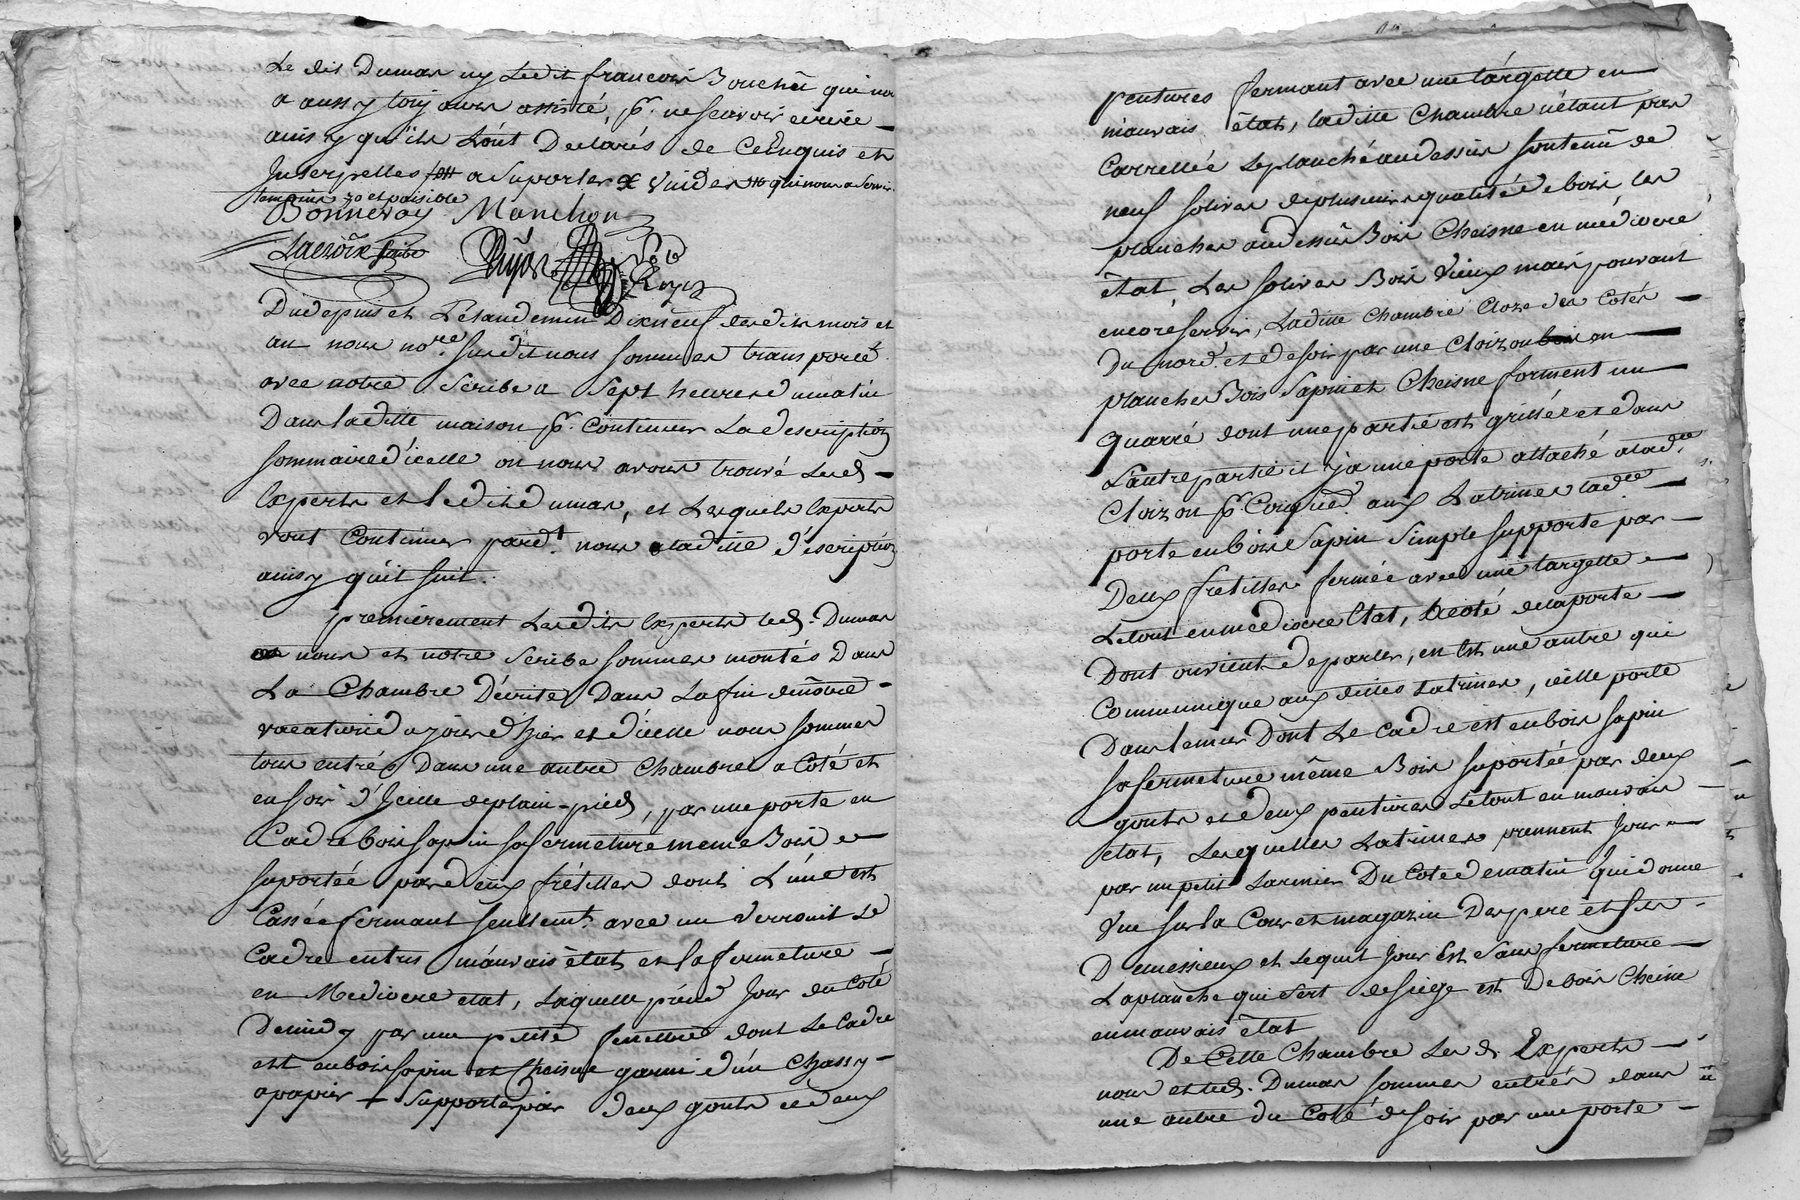 Le dit Dumas ny Ledit francois Bouchu qui nou
a aussy toujours assisté, pr. ne scavoir ecrire
ainsy qu'ils L'ont Declarés de Ce Enquis et
Interpelles a Suporter & vuider qui nous a Servi
temoins et paisible
Bonnevay Manchon
Lacroix Scribe
Duyon
Royer
Dudepuis et L'Elandemin Dixneuf desdits mois et
an nous nore. Susdit nous sommes transporté
avec notre Scribe a Sept heures du matin
Dans laditte maison pr. Continuer La description
Sommaire d'icelle ou nous avons trouvé Lesd.
Experts et ledit dumas, et Lesquels Experts
vont Continuer pard.t nous a laditte déscription
ainsy qu'il suit.
premièrement Lesdits Experts led. Dumas
nous et notre Scribe sommes montés Dans
La Chambre D'écrite Dans La fin de nôtre
vacation du jour d'hier et d'icelle nous sommes
tous entrés Dans une autre Chambre a Coté et
en soir d'Jcelle deplain-pied, par une porte en
Cadre bois sapin sa fermeture meme Bois
suportée par deux frétilles dont L'une est
Cassée fermant seullemt. avec un verrouil Le
Cadre en tres mauvais état et la fermeture
en Mediocre etat, Laquelle prend Jour du Coté
De midy par une petite fenettre dont Le Cadre
est en bois sapin et Cheisne garni d'un Chassy
a papier supporté par deux gonts et deux
pentures fermant avec une targette en
mauvais état, laditte Chambre n'étant pas
Carrellée Le planché au dessus soutenu de
neuf solives de plusieurs qualité de bois les
planches au dessus Bois Cheisne en médiocre
état, Les solives Bois vieux mais pouvant
encore servir, Laditte Chambre Close des Cotés
Du nord et de soir par une Cloizon en
planches Bois Sapin et Cheisne forment un
quarré dont une partie est grillée et dans
L'autre partie il y a une porte attaché a lad.te
Cloizon pr. Communiqr. aux Latrines lad.te
porte en bois Sapin simple supporte par
Deux fretilles fermée avec une targette
Le tout en mediocre Etat, a Coté de la porte
Dont on vient de parler, en Est une autre qui
Communique aux dittes Latrines, icelle porte
Dans le mur Dont Le Cadre est en bois sapin
sa fermeture même Bois suportée par deux
gonts et deux pentures Le tout en mauvais
etat, Lesquelles Latrines prennent Jour
par un petit Larmier Du Coté de matin qui donne
Vue sur la Cour et magazin Des pere et fils
D et Lequel Jour Est Sans fermeture
La planche qui sert de siege est De bois Cheine
en mauvais état
De Cette Chambre Les d. Experts
nous et led. Dumas sommes entrés dans
une autre du Coté de soir par une porte